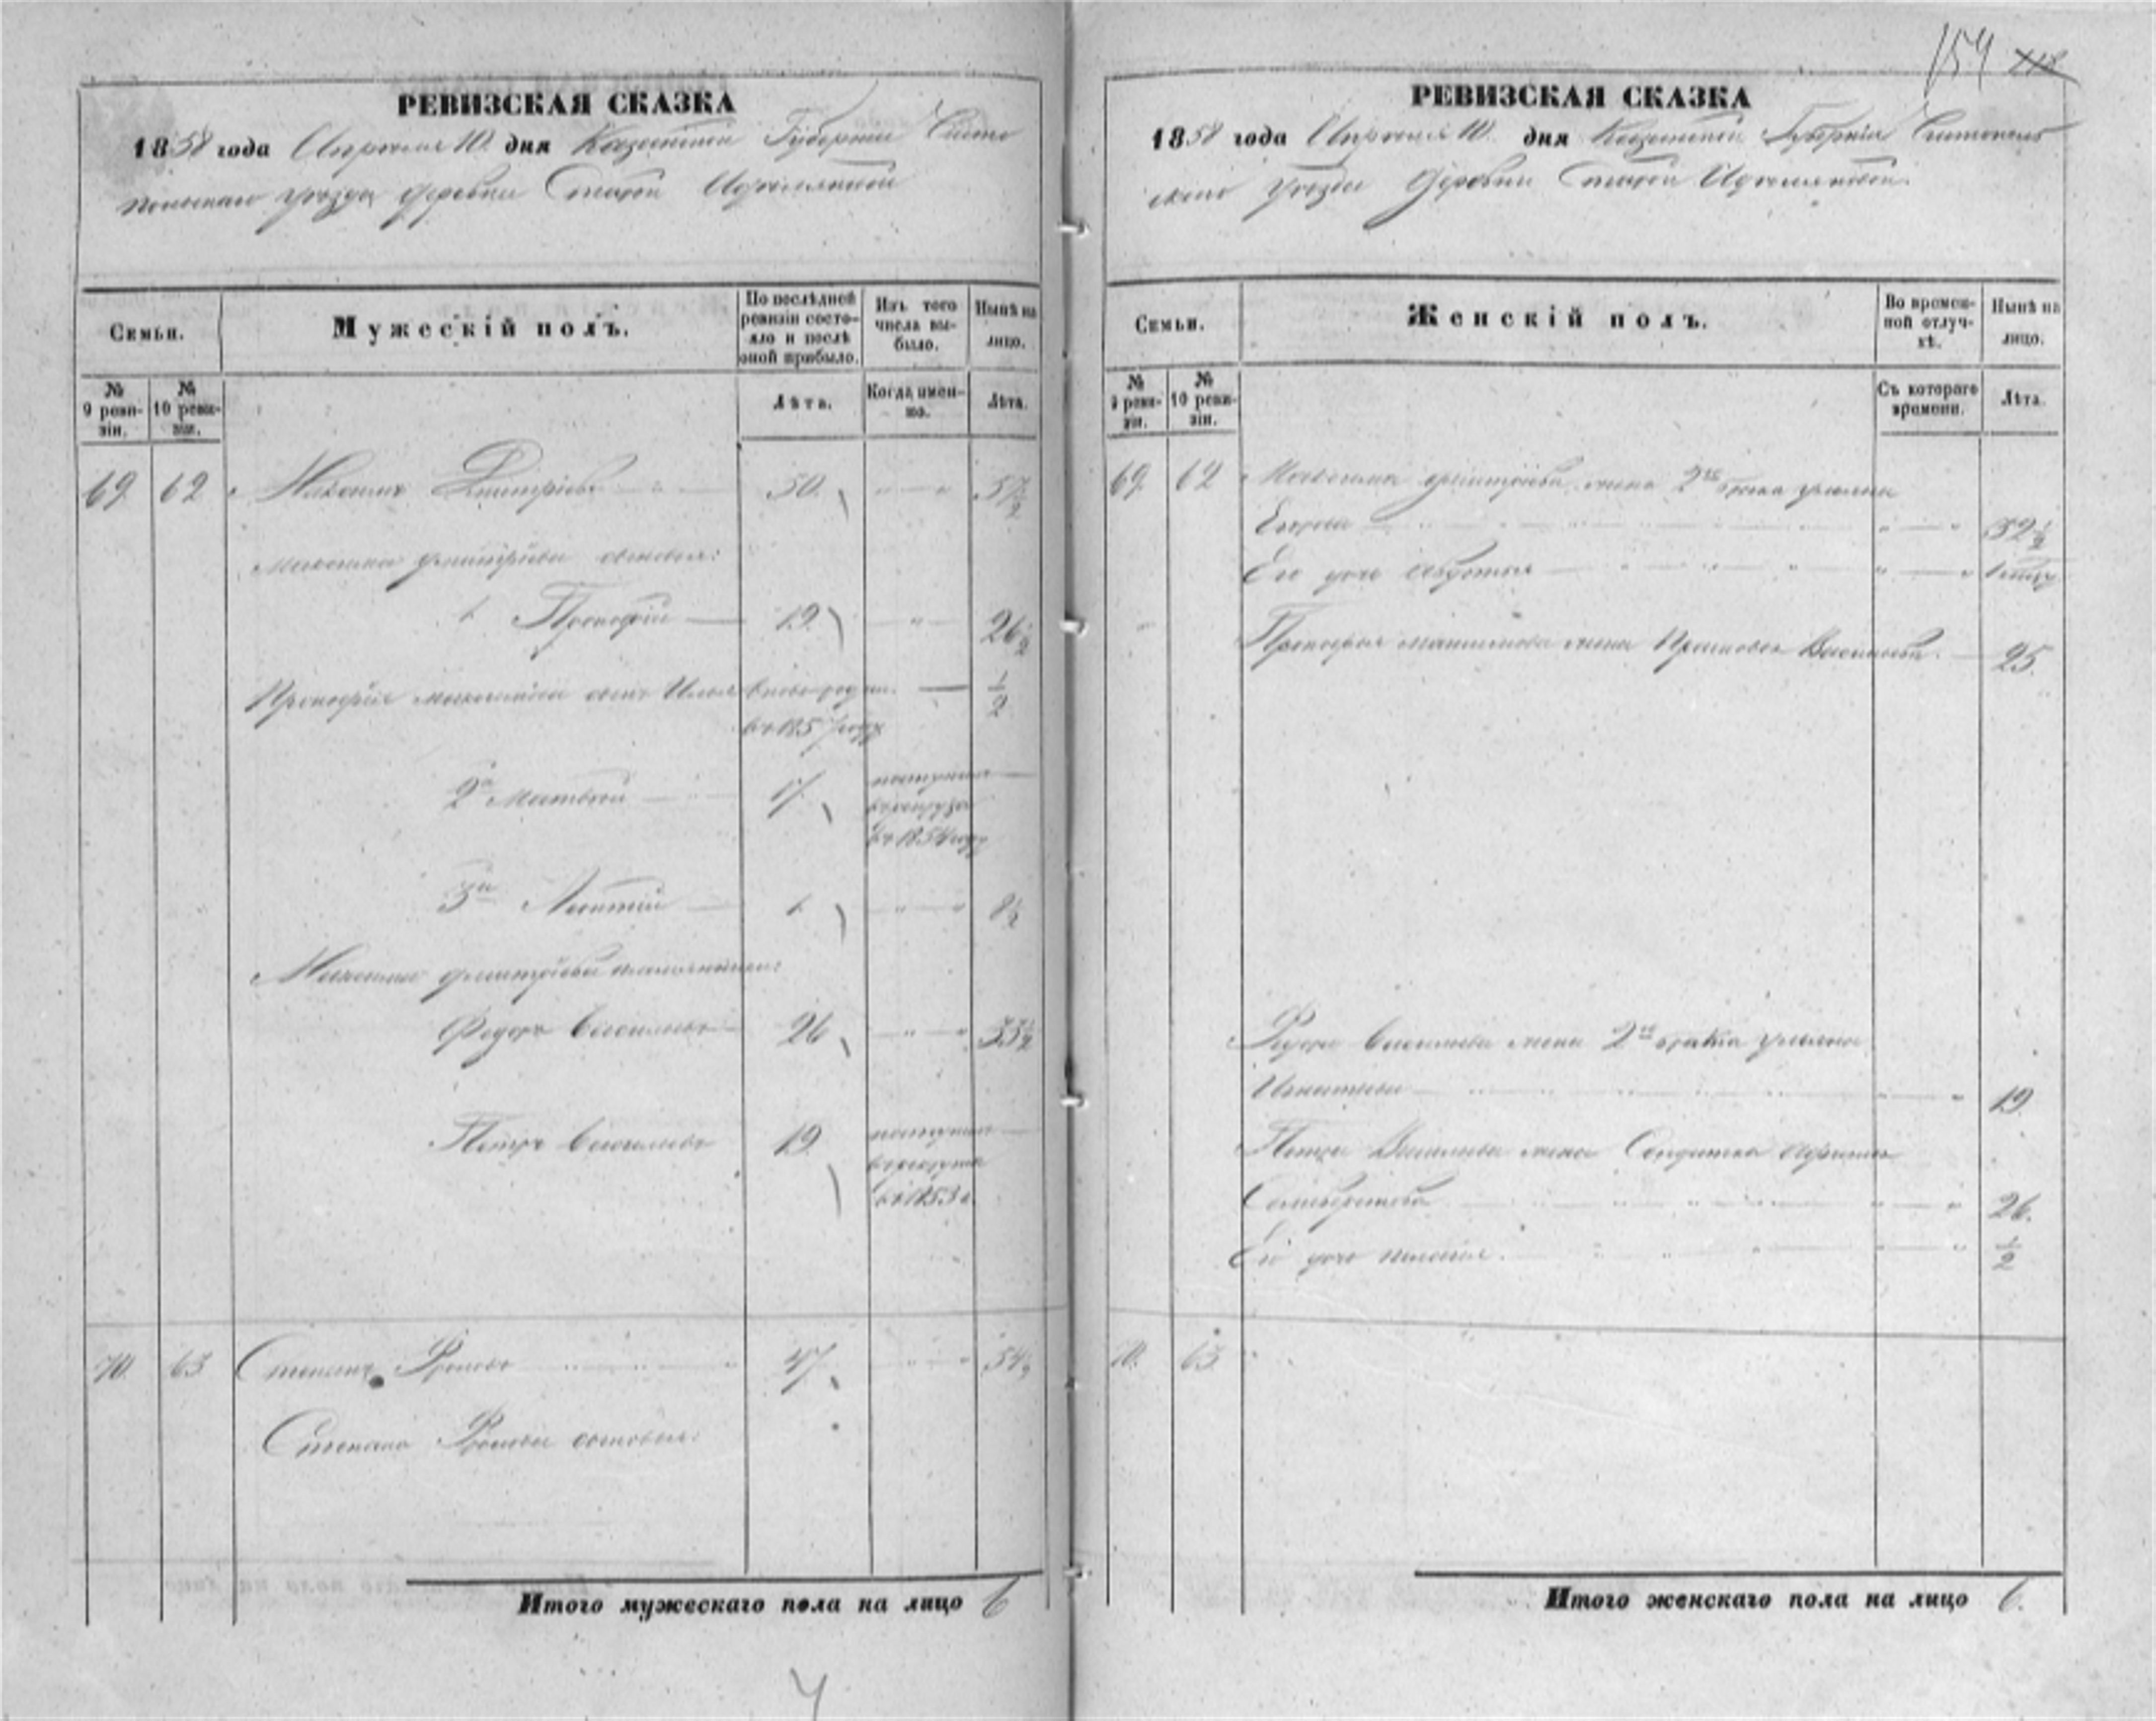 154
РЕВИЗСКАЯ СКАЗКА
1858 года Апреля 10 дня Казанской Губернии Чисто
польскаго уезда деревни Старой
Семьи.
Мужескій полъ.
По послѣдней ревизіи состояло и послѣ оной прибыло.
Изъ того числа выбыло.
Нынѣ на лицо.
№ 9 ревизіи.
№ 10 ревизіи.
Лѣта.
Когда именно.
Лѣта.
69 62 Максимъ Дмитріевъ 50 57½
Максима Дмитріева сыновья:
1 Прокофій 19 26½
Прокофія Максимова сынъ Илья вновь род. ½
въ 1857 году
2й Матвей 17 поступилъ
в рекруты
въ 1854 году
3й Леонтій 1 8½
Максима Дмитріева племянники:
Федоръ Васильевъ 26 33½
Петръ Васильевъ 19 поступилъ
в рекруты
въ 1853 г.
70 63 Степанъ Фроловъ 47 54½
Степана Фролова сыновья:
Итого мужескаго пола на лицо 6
РЕВИЗСКАЯ СКАЗКА
1858 года Апреля 10 дня Казанской Губерніи Чистополь
скаго уезда Деревни Старой
Семьи.
Женскій полъ.
Во временной отлучкѣ.
Нынѣ на лицо.
№ 9 ревизіи.
№ 10 ревизіи.
Съ котораго времени.
Лѣта.
69 62 Максима Дмитріева жена 2го брака Ульяна
Егорова 52½
Его дочь Авдотья
Прокофья Максимова жена Прасковья Васильева 25
Федора Васильева жена 2го брака Ульяна
Игнатьева 19
Петра Васильева жена Солдатка
Селиверстова 26
Его дочь ½
70 63
Итого женскаго пола на лицо 6.